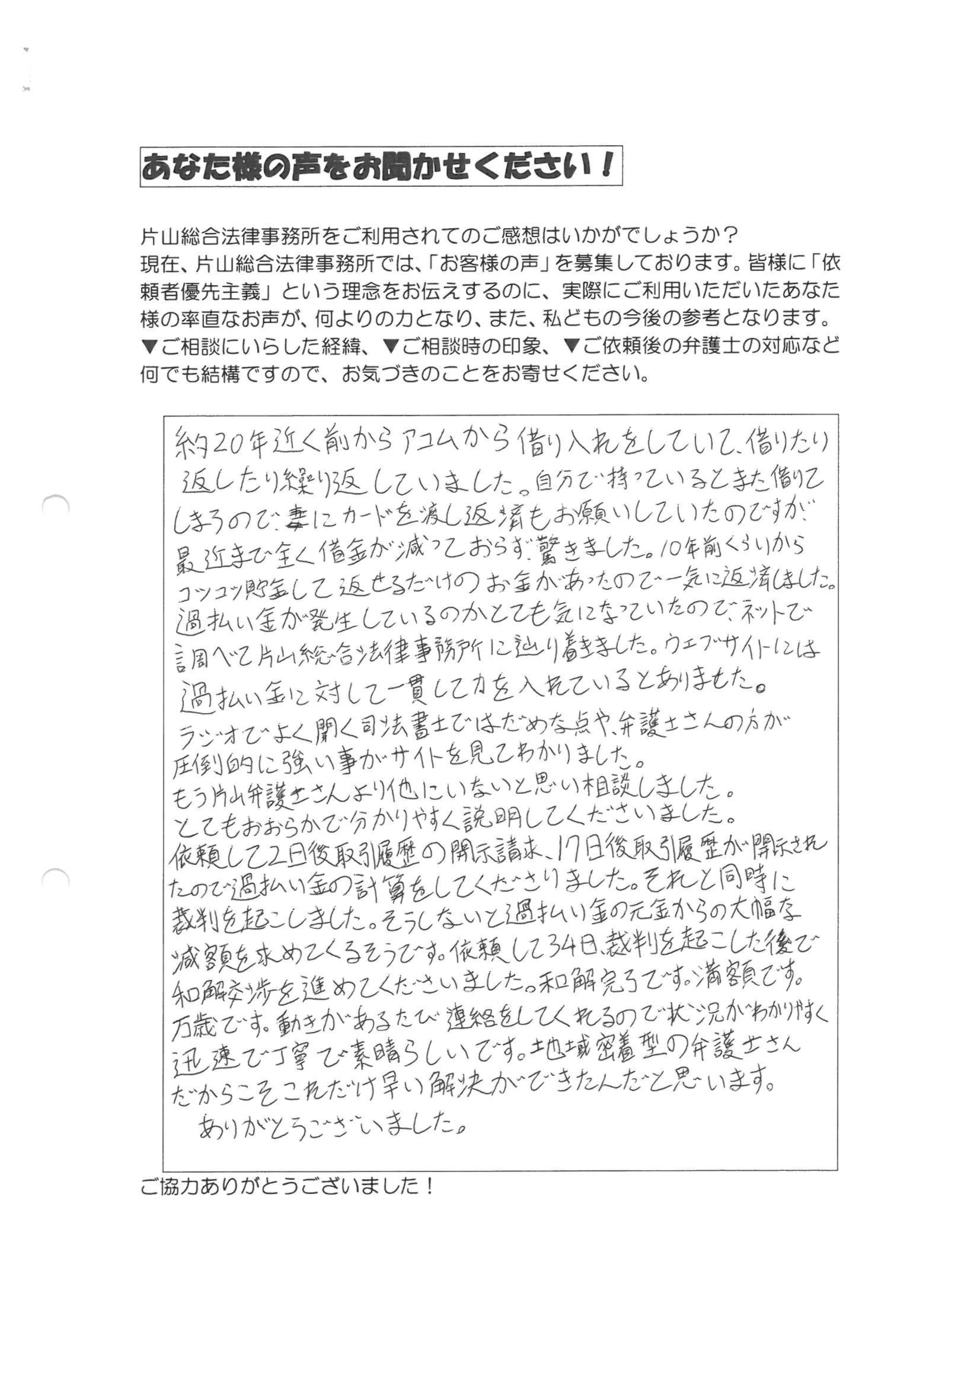 あなた様の声をお聞かせください！
片山総合法律事務所をご利用されてのご感想はいかがでしょうか？
現在、片山総合法律事務所では、「お客様の声」を募集しております。皆様に「依
頼者優先主義」という理念をお伝えするのに、実際にご利用いただいたあなた
様の率直なお声が、何よりの力となり、また、私どもの今後の参考となります。
▼ご相談にいらした経緯、▼ご相談時の印象、▼ご依頼後の弁護士の対応など
何でも結構ですので、お気づきのことをお寄せください。
約20年近く前からアコムから借り入れをしていて、借りたり
返したり繰り返していました。自分で持っているとまた借りて
しまうので、妻にカードを渡し返済もお願いしていたのですが、
最近まで全く借金が減っておらず、驚きました。10年前くらいから
コツコツ貯金して返せるだけのお金があったので一気に返済しました。
過払い金が発生しているのかとても気になっていたので、ネットで
調べて片山総合法律事務所に辿り着きました。ウェブサイトには
過払い金に対して一貫して力を入れているとありました。
ラジオでよく聞く司法書士ではだめな点や、弁護士さんの方が
圧倒的に強い事がサイトを見てわかりました。
もう片山弁護士さんより他にいないと思い相談しました。
とてもおおらかで分かりやすく説明してくださいました。
依頼して2日後取引履歴の開示請求、17日後取引履歴が開示され
たので過払い金の計算をしてくださりました。それと同時に
裁判を起こしました。そうしないと過払い金の元金からの大幅な
減額を求めてくるそうです。依頼して34日、裁判を起こした後で
和解交渉を進めてくださいました。和解完了です。満額です。
万歳です。動きがあるたび連絡をしてくれるので状況がわかりやすく
迅速で丁寧で素晴らしいです。地域密着型の弁護士さん
だからこそこれだけ早い解決ができたんだと思います。
ありがとうございました。
ご協力ありがとうございました！